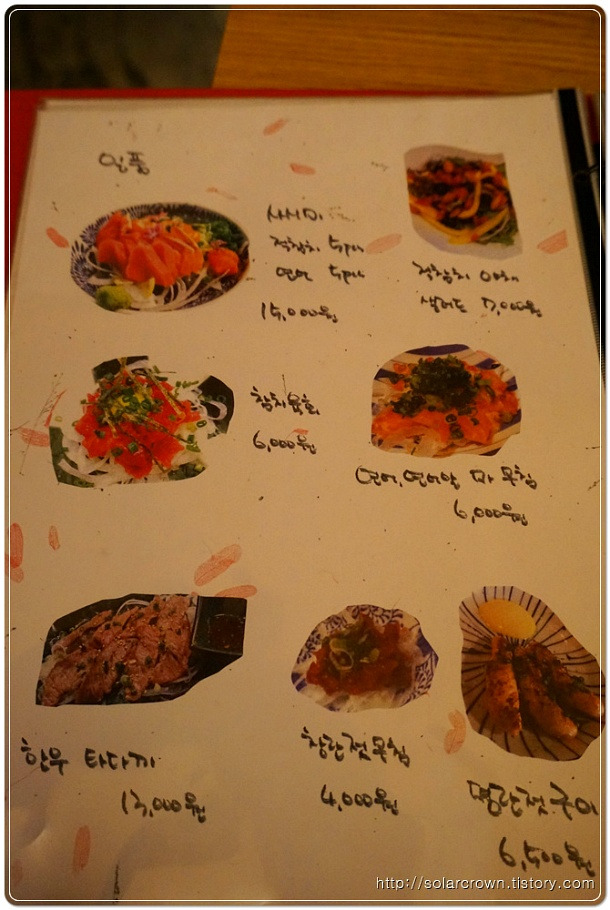 일품
사시미
적참치 5pcs
연어 5pcs
15,000원
적참치 야채
샐러드 7,000원
참치육회
6,000원
연어, 연어알 마 무침
6,000원
한우 타다끼
13,000원
창란젓무침
4,000원
명란젓구이
6,500원
http://solarcrown.tistory.com